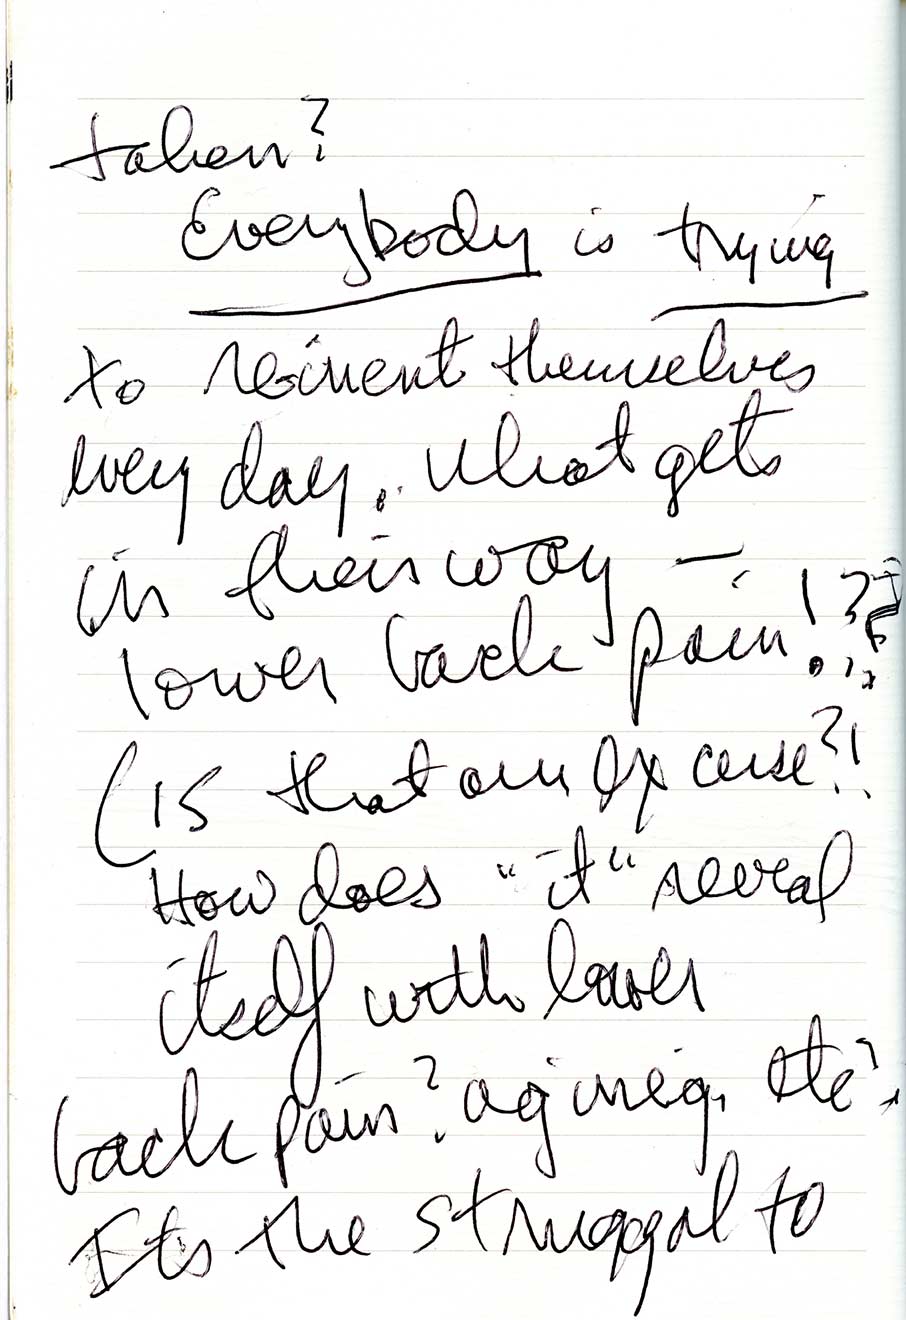 taken?
Everybody is trying
to reinvent themselves
every day. What gets
in their way —
lower back pain!??
(Is that an excuse?!
How does "it" reveal
itself with lower
back pain? aging, etc?
Its the struggal to